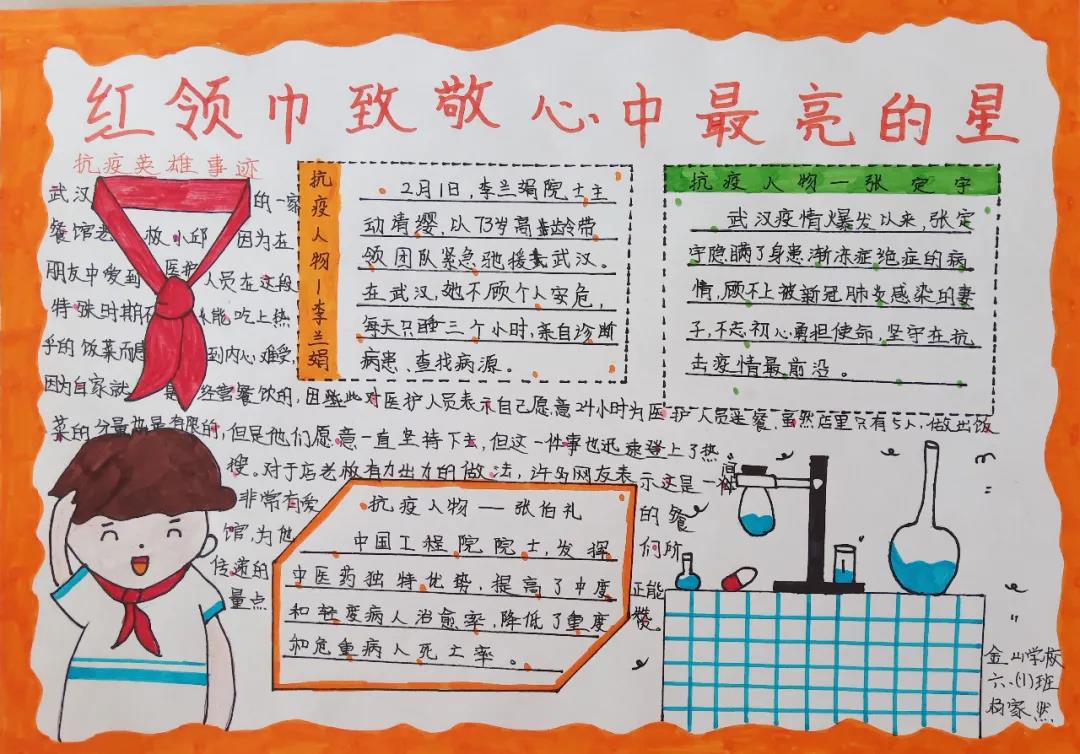 红领巾致敬心中最亮的星
抗疫英雄事迹
武汉 的一家
餐馆老板小邱 因为在
朋友中爱到 医护人员在这段
特殊时期不 能吃上热
乎的饭菜而感到内心难受,
因为自家就是经营餐饮的,因此对医护人员表示自己愿意24小时为医护人员送餐,虽然店里只有5人,做出饭
菜的分量也是有限的,但是他们愿意一直坚持下去,但这一件事也迅速登上了热
搜。对于店老板有力出力的做法,许多网友表示这是一间
非常有爱 的餐
馆,为他 们所
传递的 正能
量点 赞。
抗疫人物—李兰娟
2月1日,李兰娟院士主
动请缨,以73岁高龄带
领团队紧急驰援武汉。
在武汉,她不顾个人安危,
每天只睡三个小时,亲自诊断
病患、查找病源。
抗疫人物—张定宇
武汉疫情爆发以来,张定
宇隐瞒了身患渐冻症绝症的病
情,顾不上被新冠肺炎感染的妻
子,不忘初心勇担使命,坚守在抗
击疫情最前沿。
抗疫人物——张伯礼
中国工程院院士,发挥
中医药独特优势,提高了中度
和轻度病人治愈率,降低了重度
和危重病人死亡率。
金山学校
六、(1)班
杨家然